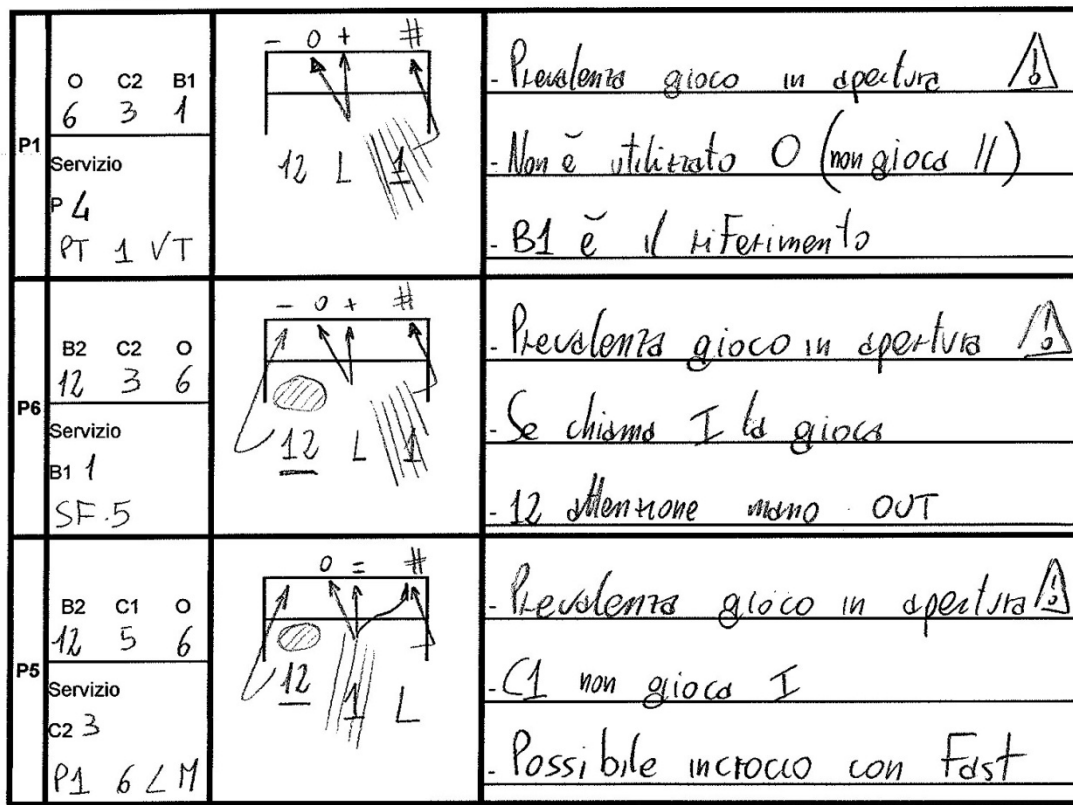 P1
O C2 B1
6 3 1
Servizio
P 4
PT 1 VT
- O + #
12 L 1
- Prevalenza gioco in apertura !
- Non è utilizzato O (non gioca II)
- B1 è il riferimento
P6
B2 C2 O
12 3 6
Servizio
B1 1
SF.5
- O + #
12 L 1
- Prevalenza gioco in apertura !
- Se chiama I la gioca
- 12 attenzione mano OUT
P5
B2 C1 O
12 5 6
Servizio
C2 3
P1 6 L M
O = #
12 1 L
- Prevalenza gioco in apertura !
- C1 non gioca I
- Possibile incrocio con Fast